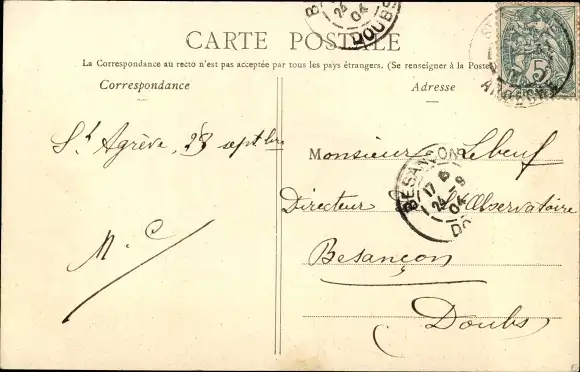 CARTE POSTALE
La Correspondance au recto n'est pas acceptée par tous les pays étrangers. (Se renseigner à la Poste
Correspondance
Adresse
St Agrève, 23 septbre
M. C
Monsieur Lebeuf
Directeur de l'Observatoire
Besançon
Doubs
BESANÇON
17
24 -9
04
DO
24
04
DOUBS
5
ARDÈCHE